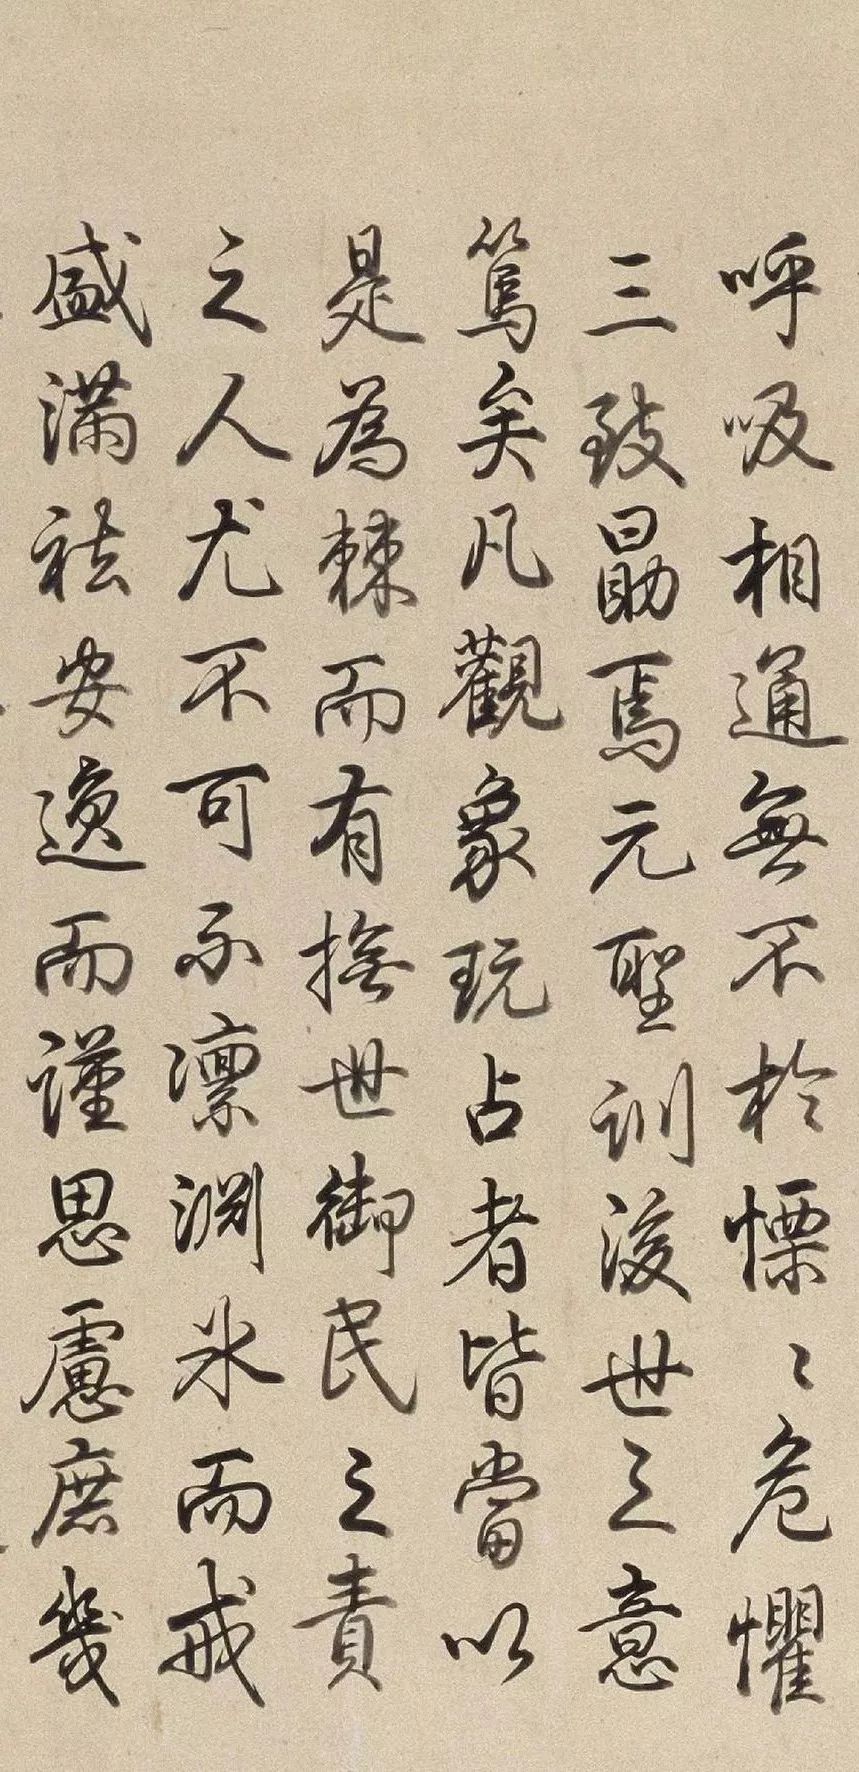 呼吸相通無不於慄〻危懼
三致勗焉元聖訓後世之意
篤矣凡觀象玩占者皆當以
是為棘而有撫世御民之責
之人尤不可不凛淵冰而戒
盛滿袪安逸而謹思慮庶幾